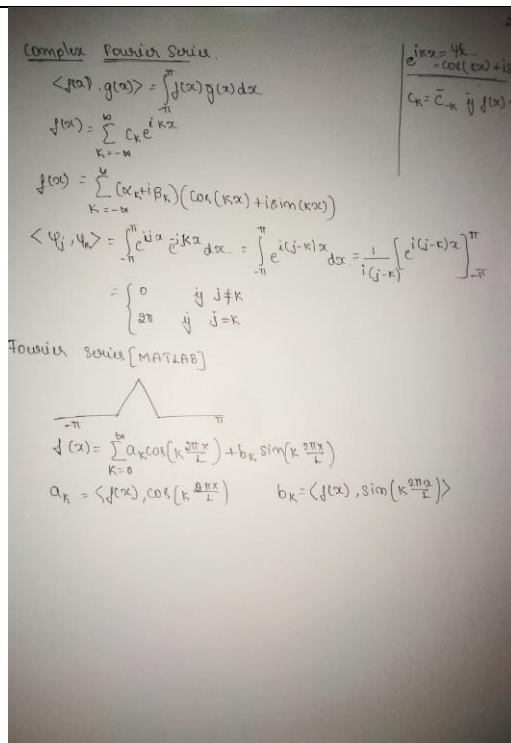 Complex Fourier Series.
e^{ikx} = ψ_k
= cos(kx)+is
C_k = C̄_{-k} if f(x)
<f(x), g(x)> = ∫_{-π}^{π} f(x) g(x) dx
f(x) = ∑_{K=-∞}^{∞} C_k e^{ikx}
f(x) = ∑_{K=-∞}^{∞} (α_k+iβ_k)(cos(kx)+isin(kx))
<ψ_j, ψ_k> = ∫_{-π}^{π} e^{ijx} e^{-ikx} dx = ∫_{-π}^{π} e^{i(j-k)x} dx = 1/i(j-k) [e^{i(j-k)x}]_{-π}^{π}
= { 0 if j≠k
2π if j=k
Fourier series [MATLAB]
-π π
f(x) = ∑_{K=0}^{∞} a_k cos(k 2πx/L) + b_k sin(k 2πx/L)
a_k = <f(x), cos(k 2πx/L) b_k = <f(x), sin(k 2πx/L)>